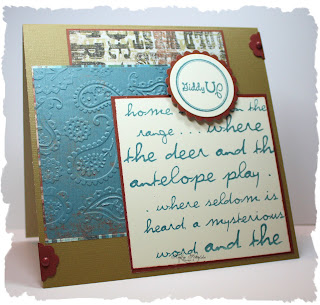 Giddy Up
home on the
range . . . where
the deer and th
antelope play .
. where seldom is
heard a mysterious
word and the